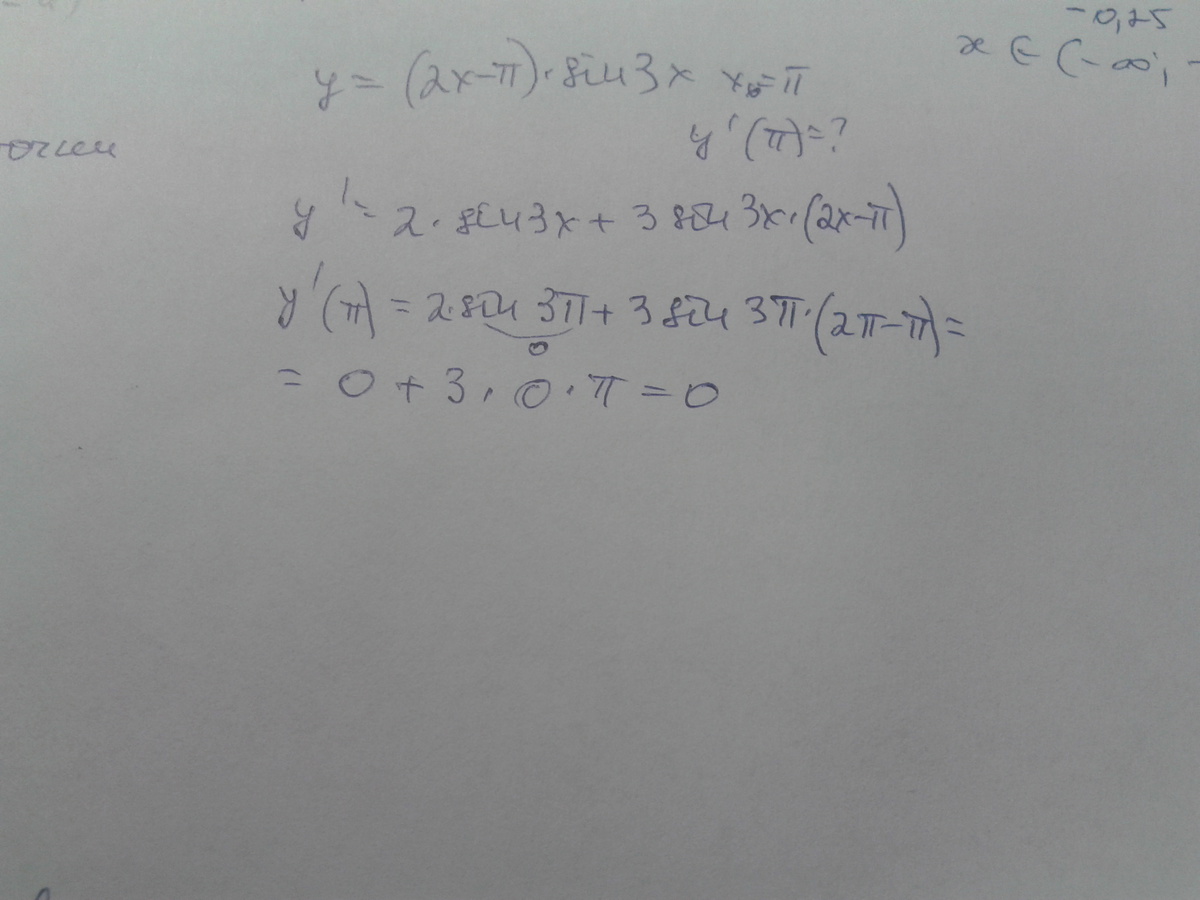 -0,25
x ∈ (-∞;
y = (2x-π)·sin3x x₀=π
y'(π)=?
y' = 2·sin3x + 3 sin 3x·(2x-π)
y'(π) = 2·sin 3π + 3 sin 3π·(2π-π) =
0
= 0 + 3 · 0 · π = 0